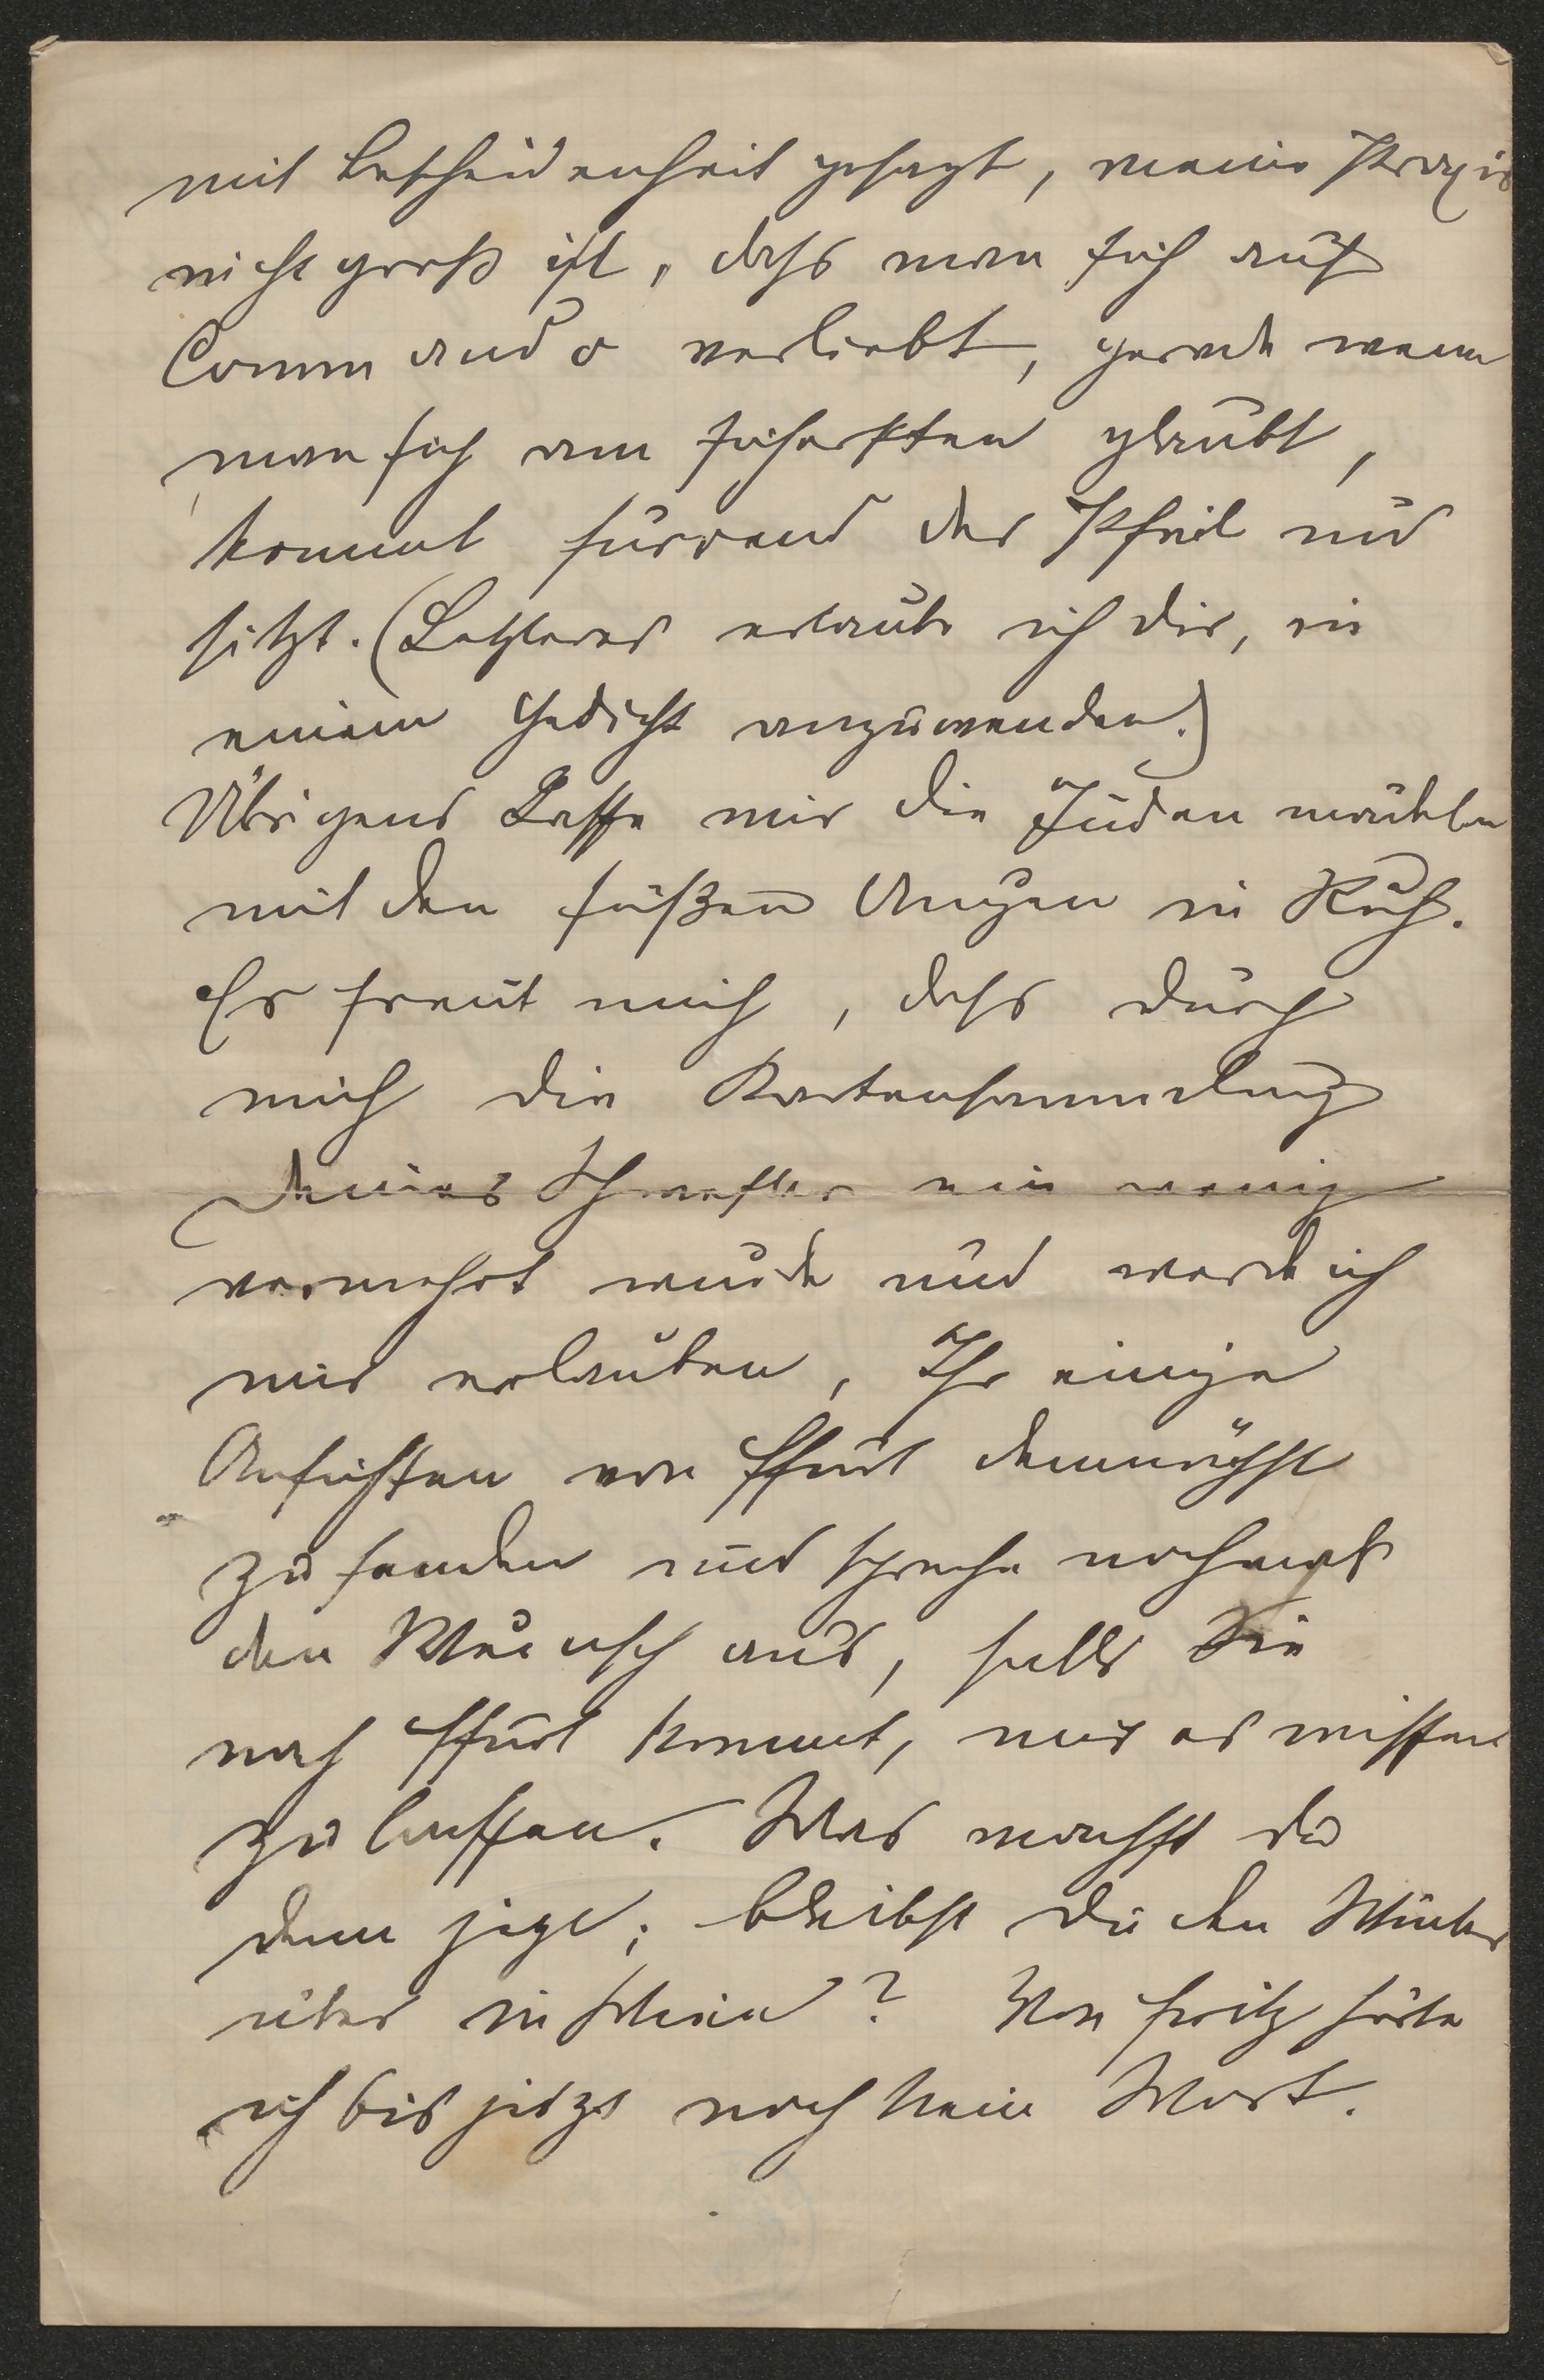 mit Bescheidenheit gesagt, meine Praxis
nicht groß ist, dass man sich auf
Commando verliebt, gerade wenn
man sich am sichersten glaubt,
kommt surrend der Pfeil und
sitzt. (Letzteres erlaube ich dir, in
einem Gedicht anzuwenden.)
Übrigens Lasse mir die Judenmädeln
mit den süßen Augen in Ruh.
Es freut mich, dass durch
mich die Kartensammlung
Deiner Schwester ein wenig
vermehrt wurde und werde ich
mir erlauben, Ihr einige
Ansichten von Ffurt demnächst
zu senden und spreche nochmals
den Wunsch aus, falls Sie
nach Ffurt kommt, mir es wissen
zu lassen. Was machst du
denn jetzt; bleibst du den Winter
über in Wien? Von Fritz hörte
ich bis jetzt noch kein Wort.